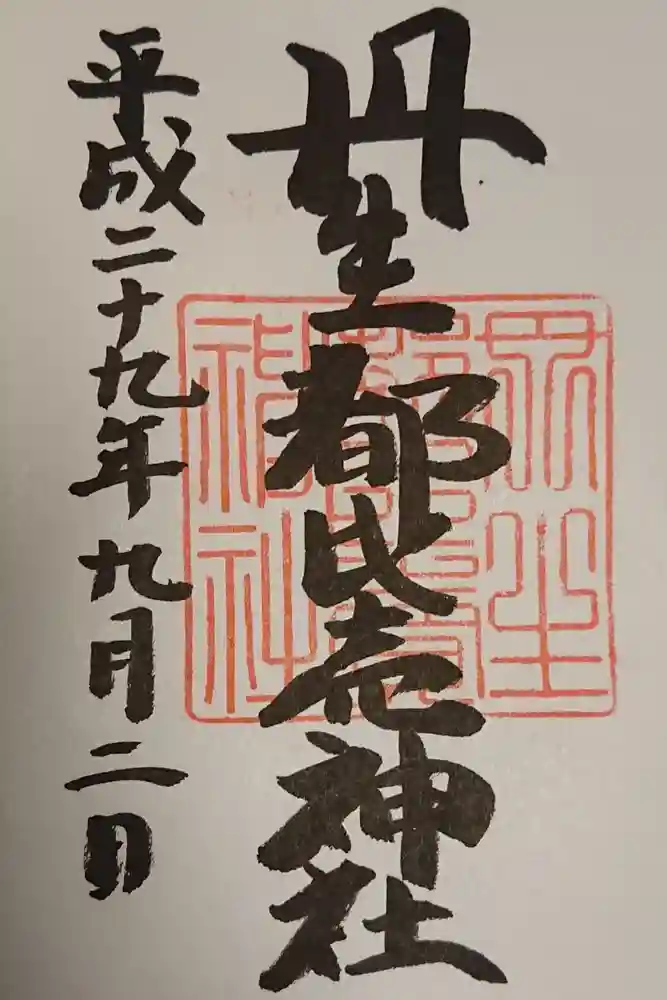 丹生都比売神社
平成二十九年九月二日
丹生
神社